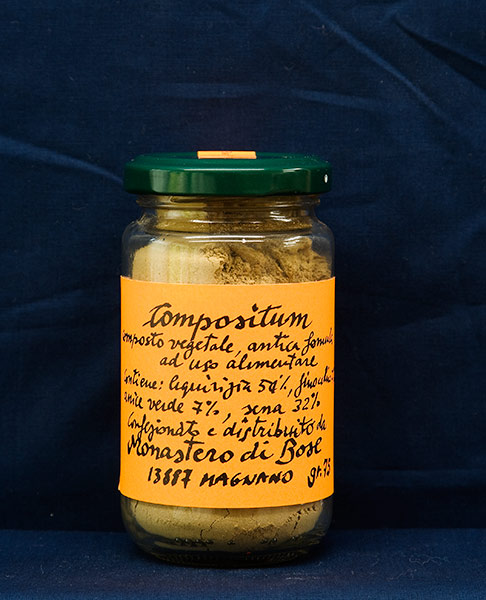 Compositum
composto vegetale, antica formula
ad uso alimentare
Contiene: liquirizia 54%, finocchio
anice verde 7%, sena 32%
Confezionato e distribuito da
Monastero di Bose
13887 MAGNANO gr. 75